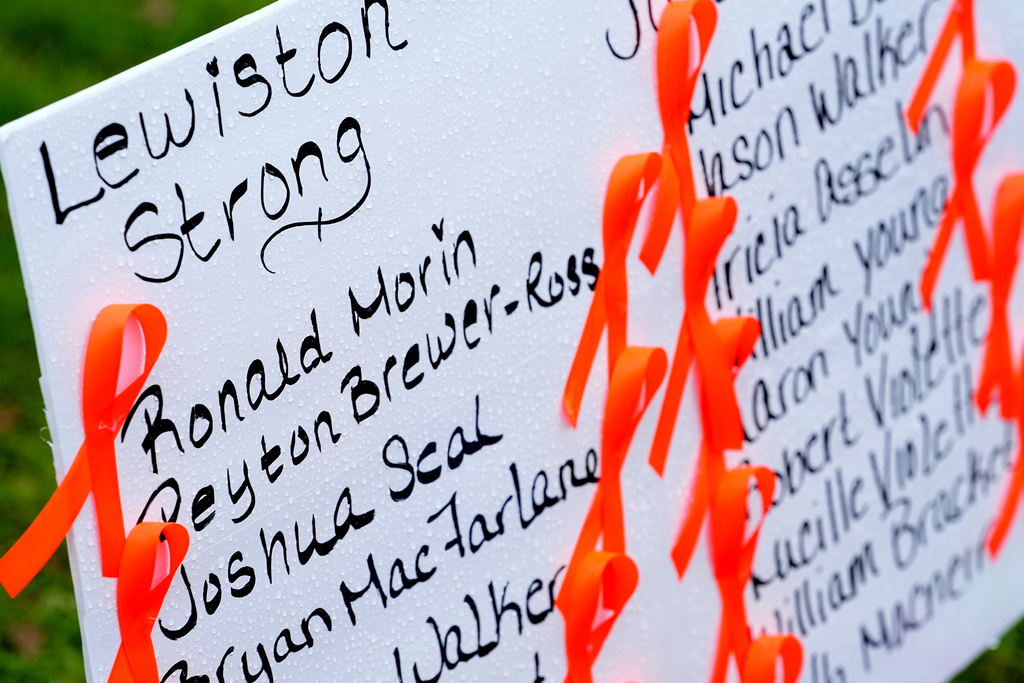 Lewiston
Strong
Ronald Morin
Peyton Brewer-Ross
Joshua Seal
Bryan MacFarlane
Walker
Michael
Jason Walker
Tricia Asselin
William Young
Aaron Young
Robert Violette
Lucille Violette
William Brackett